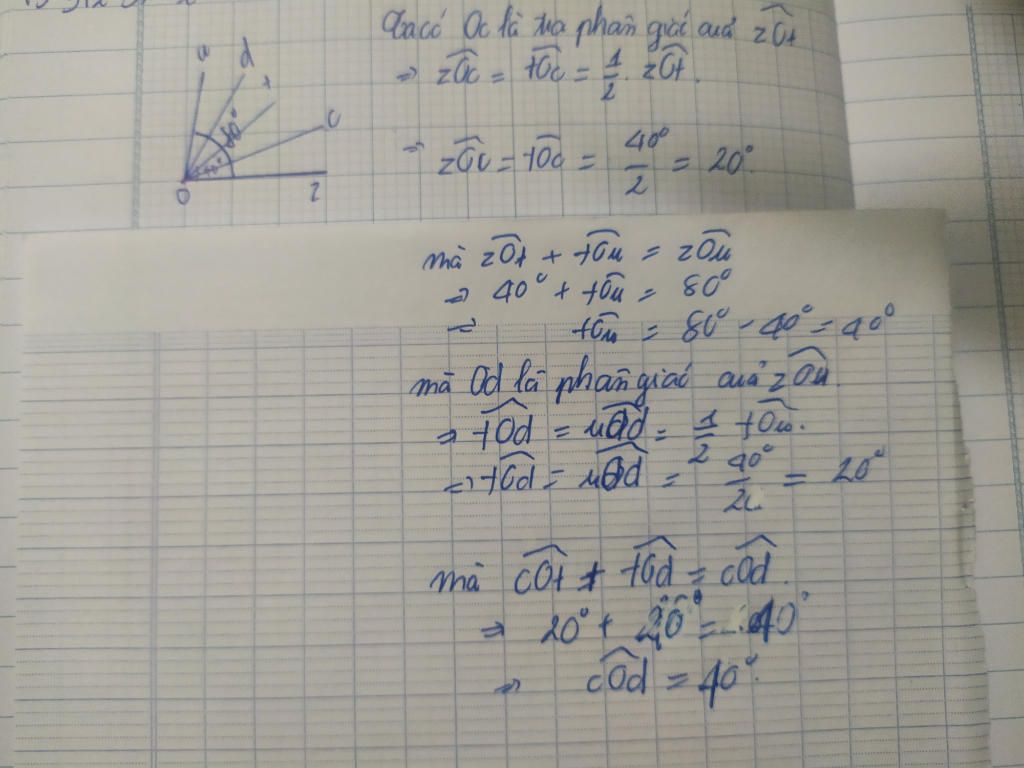 Ta có Oc là tia phân giác của zOt
⇒ zOc = tOc = 1/2 . zOt.
⇒ zOc = tOc = 40°/2 = 20°.
u
d
t
c
80°
O
z
mà zOt + tOu = zOu
⇒ 40° + tOu = 80°
⇒ tOu = 80° - 40° = 40°
mà Od là phân giác của zOu.
⇒ tOd = uOd = 1/2 tOu.
⇒ tOd = uOd = 40°/2 = 20°
mà cOt + tOd = cOd.
⇒ 20° + 20° = 40°
⇒ cOd = 40°.